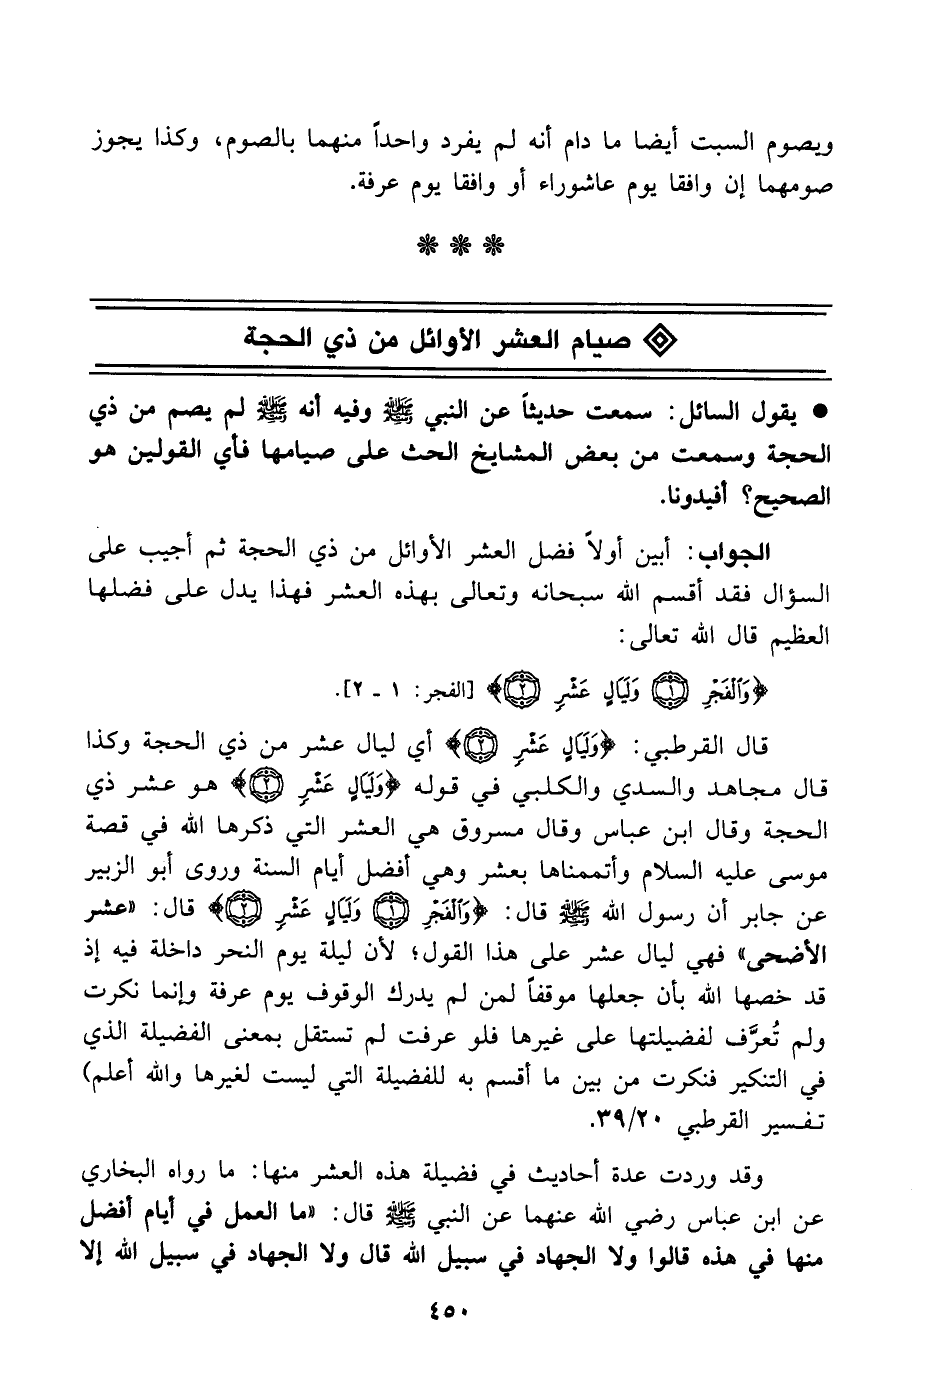 ويصوم السبت أيضا ما دام أنه لم يفرد واحداً منهما بالصوم، وكذا يجوز
صومهما إن وافقا يوم عاشوراء أو وافقا يوم عرفة.
صيام العشر الأوائل من ذي الحجة
● يقول السائل: سمعت حديثاً عن النبي ﷺ وفيه أنه ﷺ لم يصم من ذي
الحجة وسمعت من بعض المشايخ الحث على صيامها فأي القولين هو
الصحيح؟ أفيدونا.
الجواب: أبين أولاً فضل العشر الأوائل من ذي الحجة ثم أجيب على
السؤال فقد أقسم الله سبحانه وتعالى بهذه العشر فهذا يدل على فضلها
العظيم قال الله تعالى:
﴿وَٱلْفَجْرِ ۝١ وَلَيَالٍ عَشْرٍ ۝٢﴾ [الفجر: ١ ـ ٢].
قال القرطبي: ﴿وَلَيَالٍ عَشْرٍ ۝٢﴾ أي ليال عشر من ذي الحجة وكذا
قال مجاهد والسدي والكلبي في قوله ﴿وَلَيَالٍ عَشْرٍ ۝٢﴾ هو عشر ذي
الحجة وقال ابن عباس وقال مسروق هي العشر التي ذكرها الله في قصة
موسى عليه السلام وأتممناها بعشر وهي أفضل أيام السنة وروى أبو الزبير
عن جابر أن رسول الله ﷺ قال: ﴿وَٱلْفَجْرِ ۝١ وَلَيَالٍ عَشْرٍ ۝٢﴾ قال: «عشر
الأضحى» فهي ليال عشر على هذا القول؛ لأن ليلة يوم النحر داخلة فيه إذ
قد خصها الله بأن جعلها موقفاً لمن لم يدرك الوقوف يوم عرفة وإنما نكرت
ولم تُعرَّف لفضيلتها على غيرها فلو عرفت لم تستقل بمعنى الفضيلة الذي
في التنكير فنكرت من بين ما أقسم به للفضيلة التي ليست لغيرها والله أعلم)
تفسير القرطبي ٣٩/٢٠.
وقد وردت عدة أحاديث في فضيلة هذه العشر منها: ما رواه البخاري
عن ابن عباس رضي الله عنهما عن النبي ﷺ قال: «ما العمل في أيام أفضل
منها في هذه قالوا ولا الجهاد في سبيل الله قال ولا الجهاد في سبيل الله إلا
٤٥٠